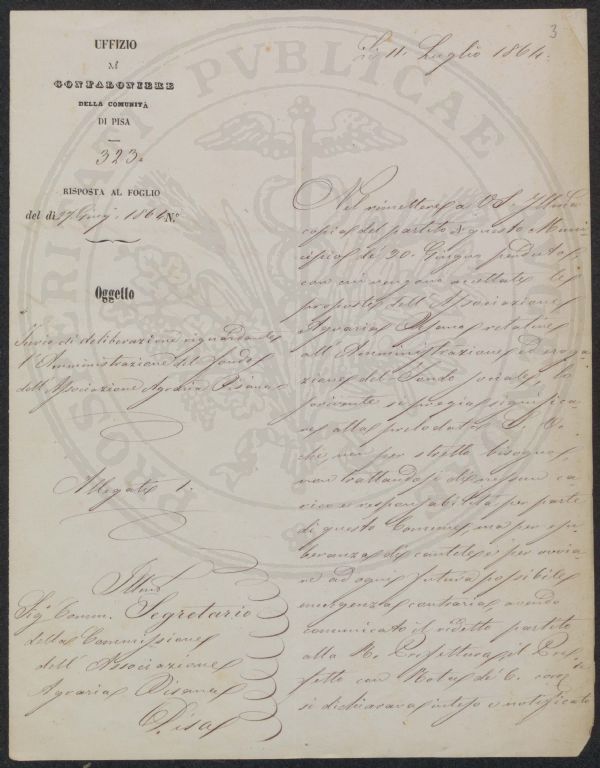 3
UFFIZIO
del
GONFALONIERE
DELLA COMUNITÀ
DI PISA
323.
RISPOSTA AL FOGLIO
del dì 27. Giug. 1864. N.º
Oggetto
Invio di deliberazione riguardante
l'Amministrazione del fondo
dell'Associazione Agraria Pisana
Allegati 1.
Illmo
Sigr. Comm. Segretario
della Commissione
dell'Associazione
Agraria Pisana
Pisa
Li 11. Luglio 1864.
Nel rimettere a V.S. Illma
copia del partito di questo Muni-
cipio de' 30. Giugno perduto,
con cui vengono accettate le
proposte dell'Associazione
Agraria Pisana relative
all'Amministrazione ed eroga-
zione del Fondo sociale, lo
scrivente si pregia significa-
re alla prelodata S. V.
che non per stretto bisogno,
non trattandosi di nessun ca-
rico e responsabilità per parte
di questo Comune, ma per esu-
beranza di cautele e per ovvia-
re ad ogni futura possibile
emergenza contraria avendo
comunicato il ridetto partito
alla R. Prefettura, il Pre-
fetto con Nota de' 6. corrte
si dichiarava inteso e notificato
PROSPERITATI PVBLICAE